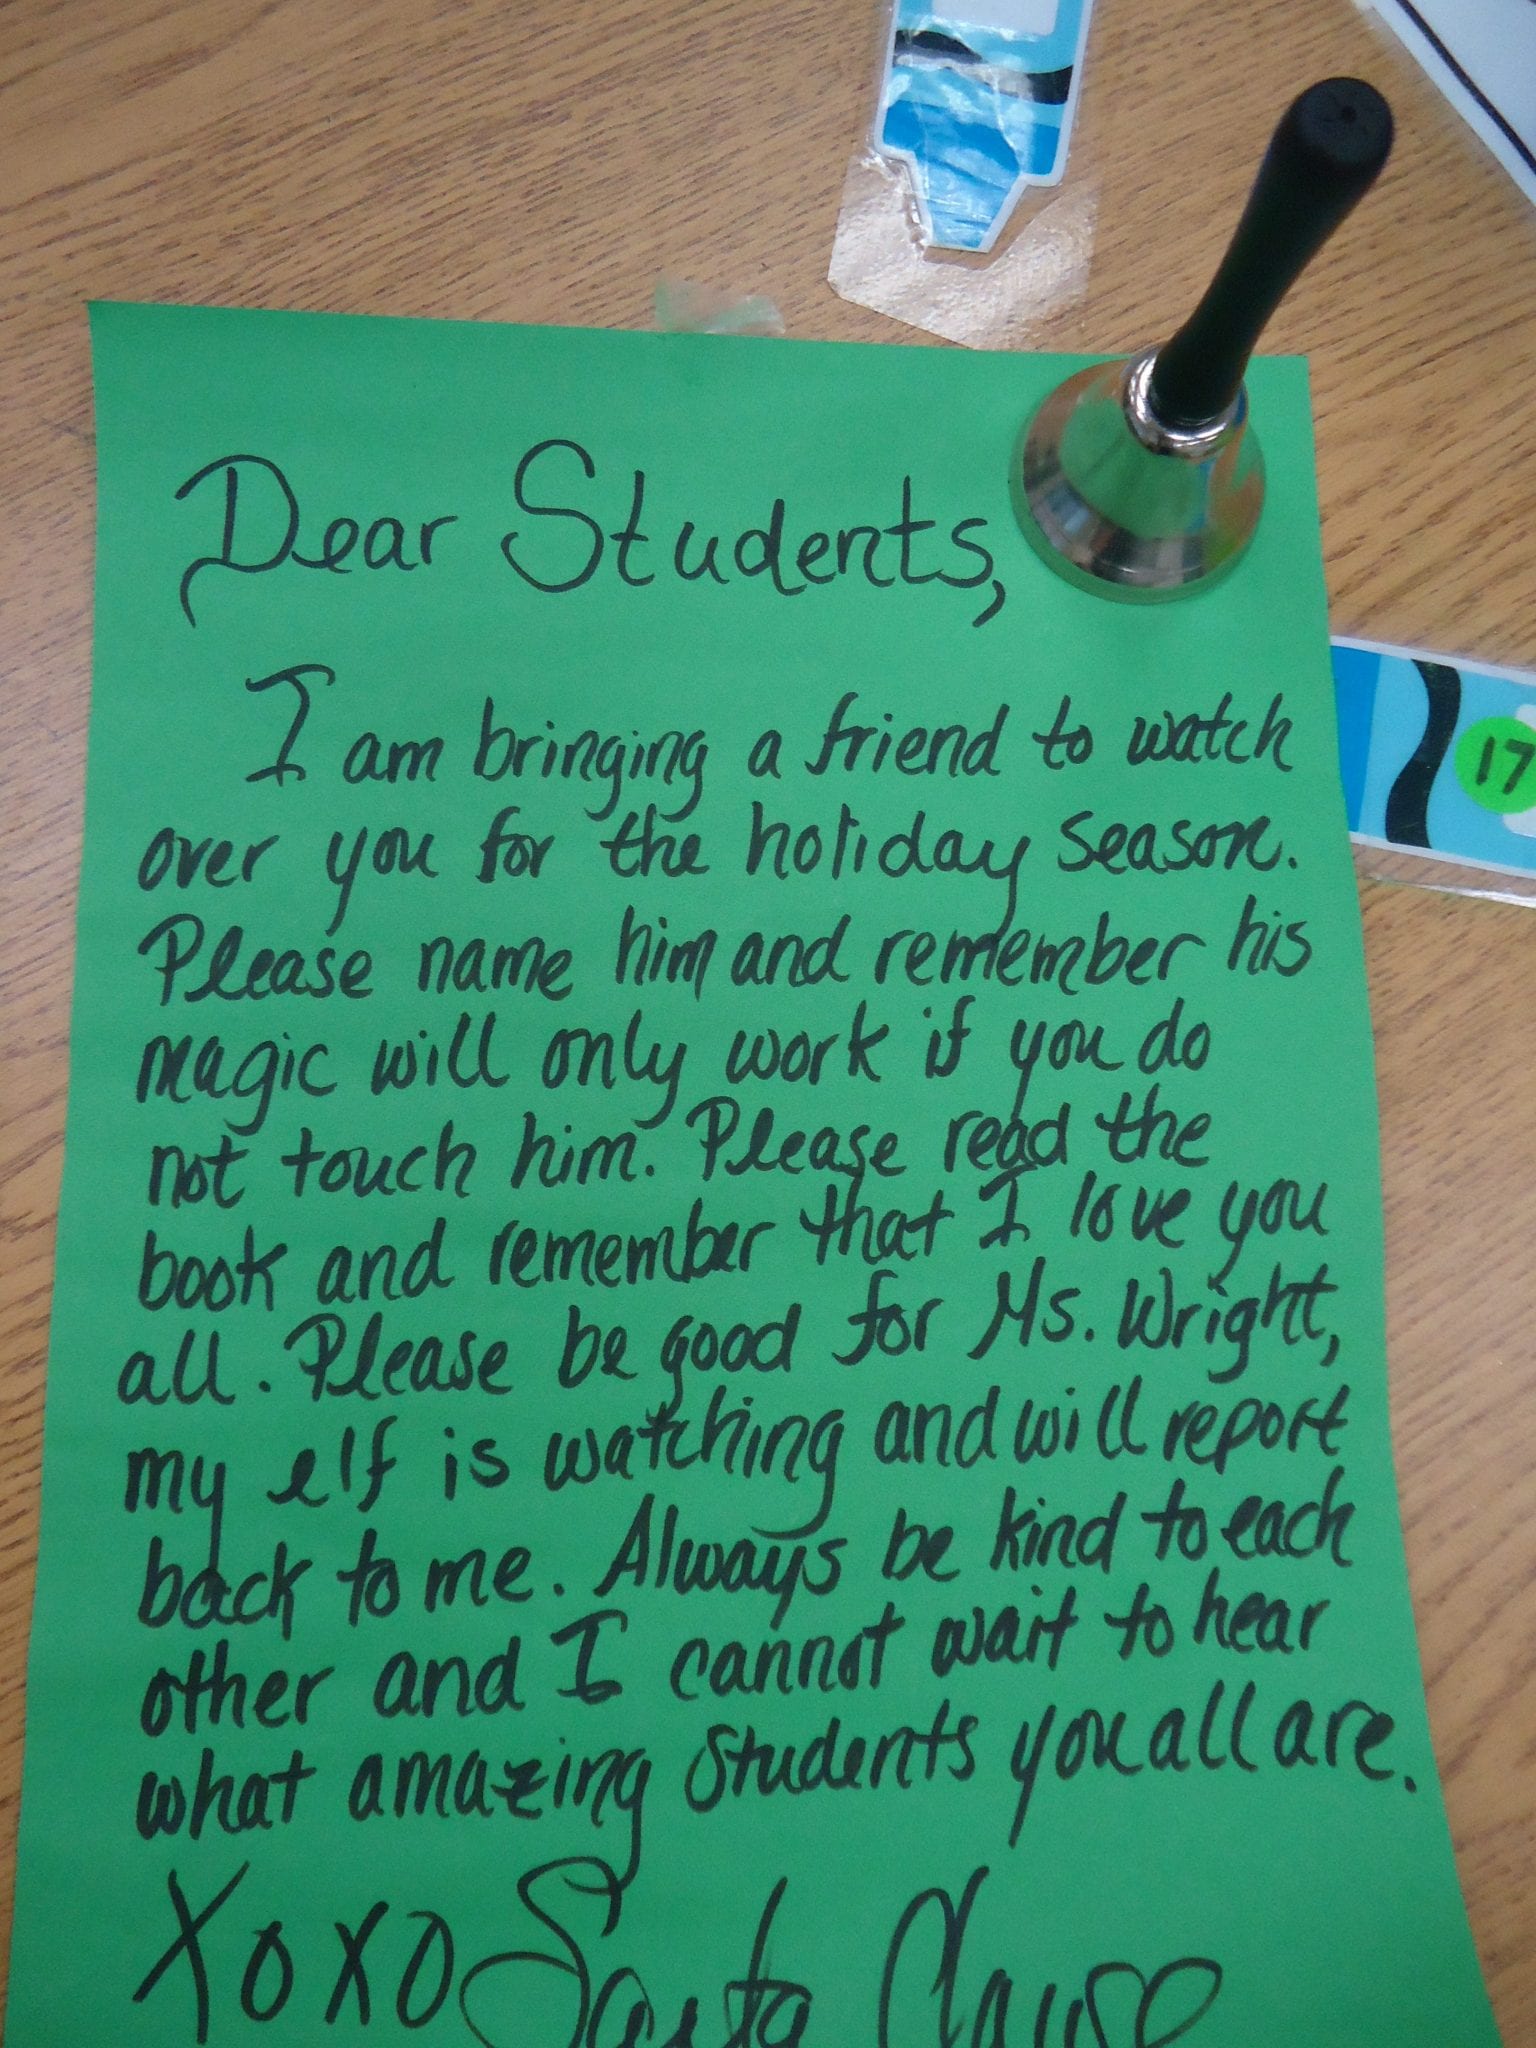 Dear Students,
I am bringing a friend to watch
over you for the holiday season.
Please name him and remember his
magic will only work if you do
not touch him. Please read the
book and remember that I love you
all. Please be good for Ms. Wright,
my elf is watching and will report
back to me. Always be kind to each
other and I cannot wait to hear
what amazing students you all are.
XOXO Santa Clause
17